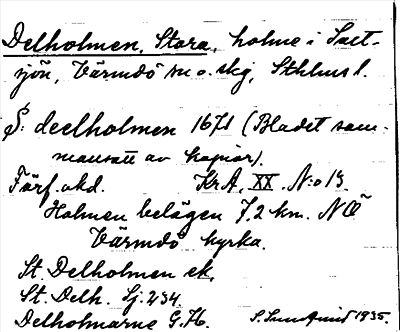 Delholmen, Stora, holme i Salt-
sjön, Värmdö sn o. skg, Sthlms l.
S: deelholmen 1671 (Bladet sam-
mansatt av kopior).
Förf. okd. KrA, XX. N:o 13.
Holmen belägen 7,2 km. NÖ
Värmdö kyrka.
St. Delholmen ek.
St. Delh. Sj. 234.
Delholmarne G.K. 1935.